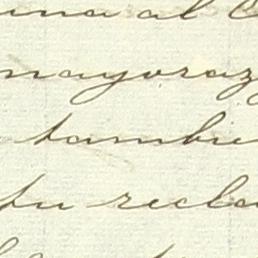 una al
mayoraz
tambie
su recla